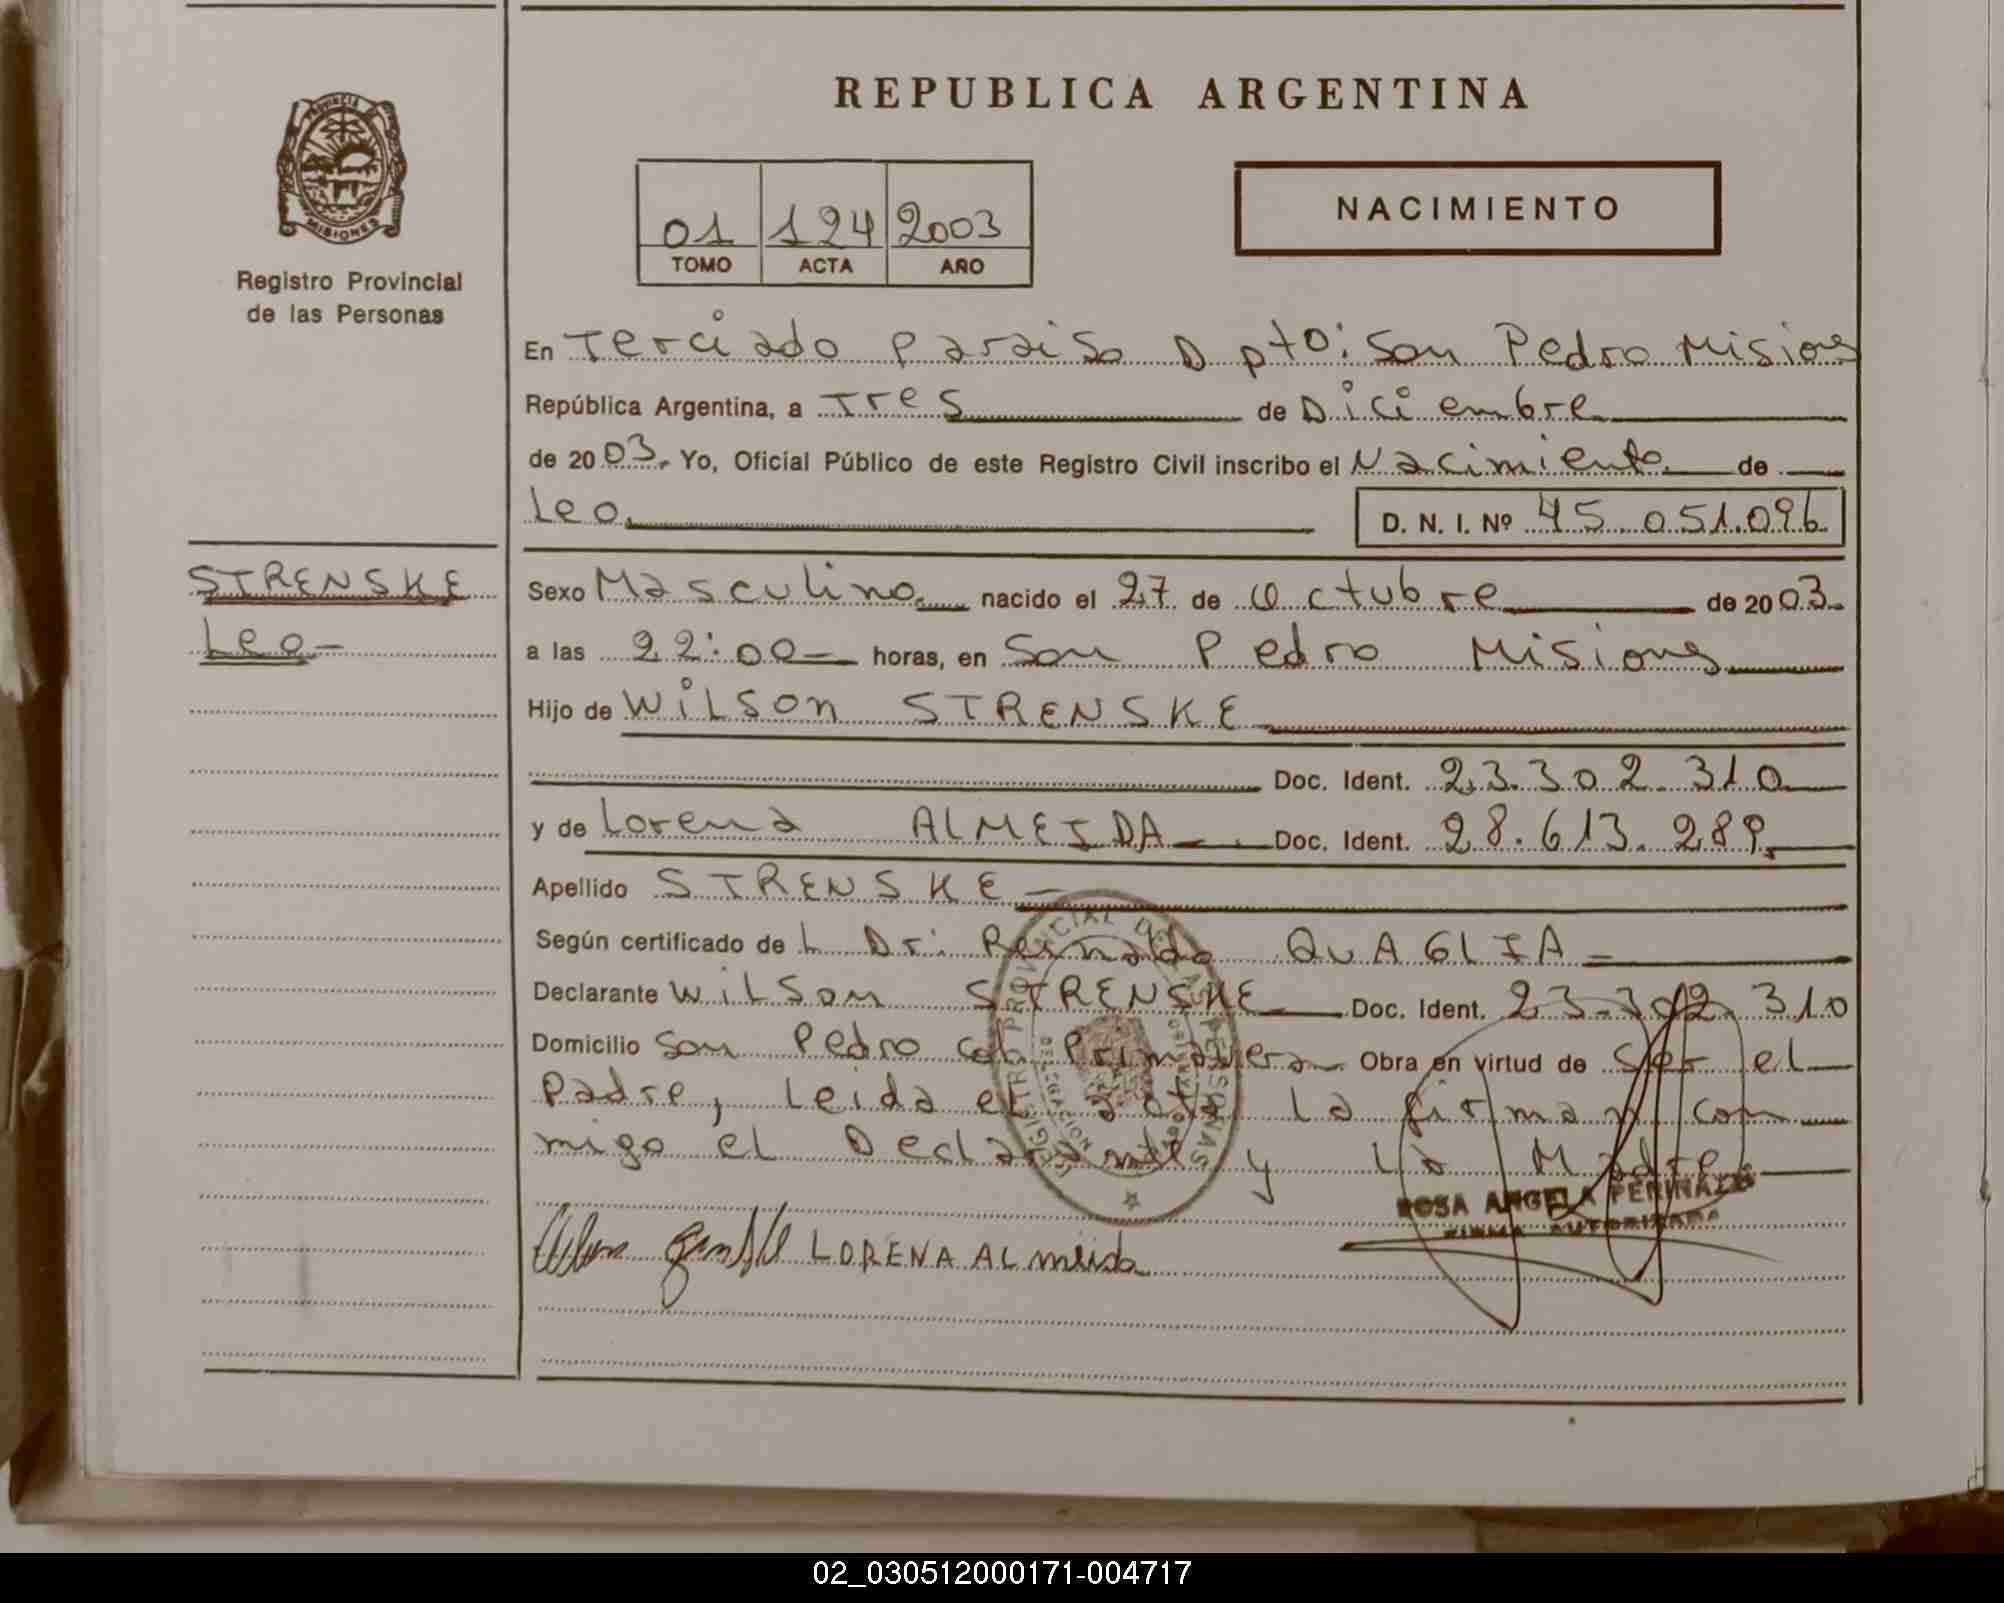 REPUBLICA ARGENTINA
PROVINCIA DE
MISIONES
Registro Provincial
de las Personas
01 124 2003
TOMO ACTA AÑO
NACIMIENTO
En Terciado Paraiso Dpto: San Pedro Misiones
República Argentina, a Tres de Diciembre
de 2003. Yo, Oficial Público de este Registro Civil inscribo el Nacimiento de
Leo. D. N. I. Nº 45.051.096
STRENSKE
Leo-
Sexo Masculino. nacido el 27 de Octubre de 2003.
a las 22:00- horas, en San Pedro Misiones
Hijo de Wilson STRENSKE
Doc. Ident. 23.302.310
y de Lorena ALMEIDA Doc. Ident. 28.613.289.
Apellido STRENSKE-
Según certificado de L Dr: Reinaldo QUAGLIA
Declarante Wilson STRENSKE Doc. Ident. 23.302.310
Domicilio San Pedro Col. Primavera Obra en virtud de Ser el
Padre, Leida el acta la firman con
migo el Declarante y la Madre
REGISTRO PROVINCIAL DE LAS PERSONAS
DELEGACION
ROSA ANGELA PERINAZZO
FIRMA AUTORIZADA
LORENA ALmeida
02_030512000171-004717